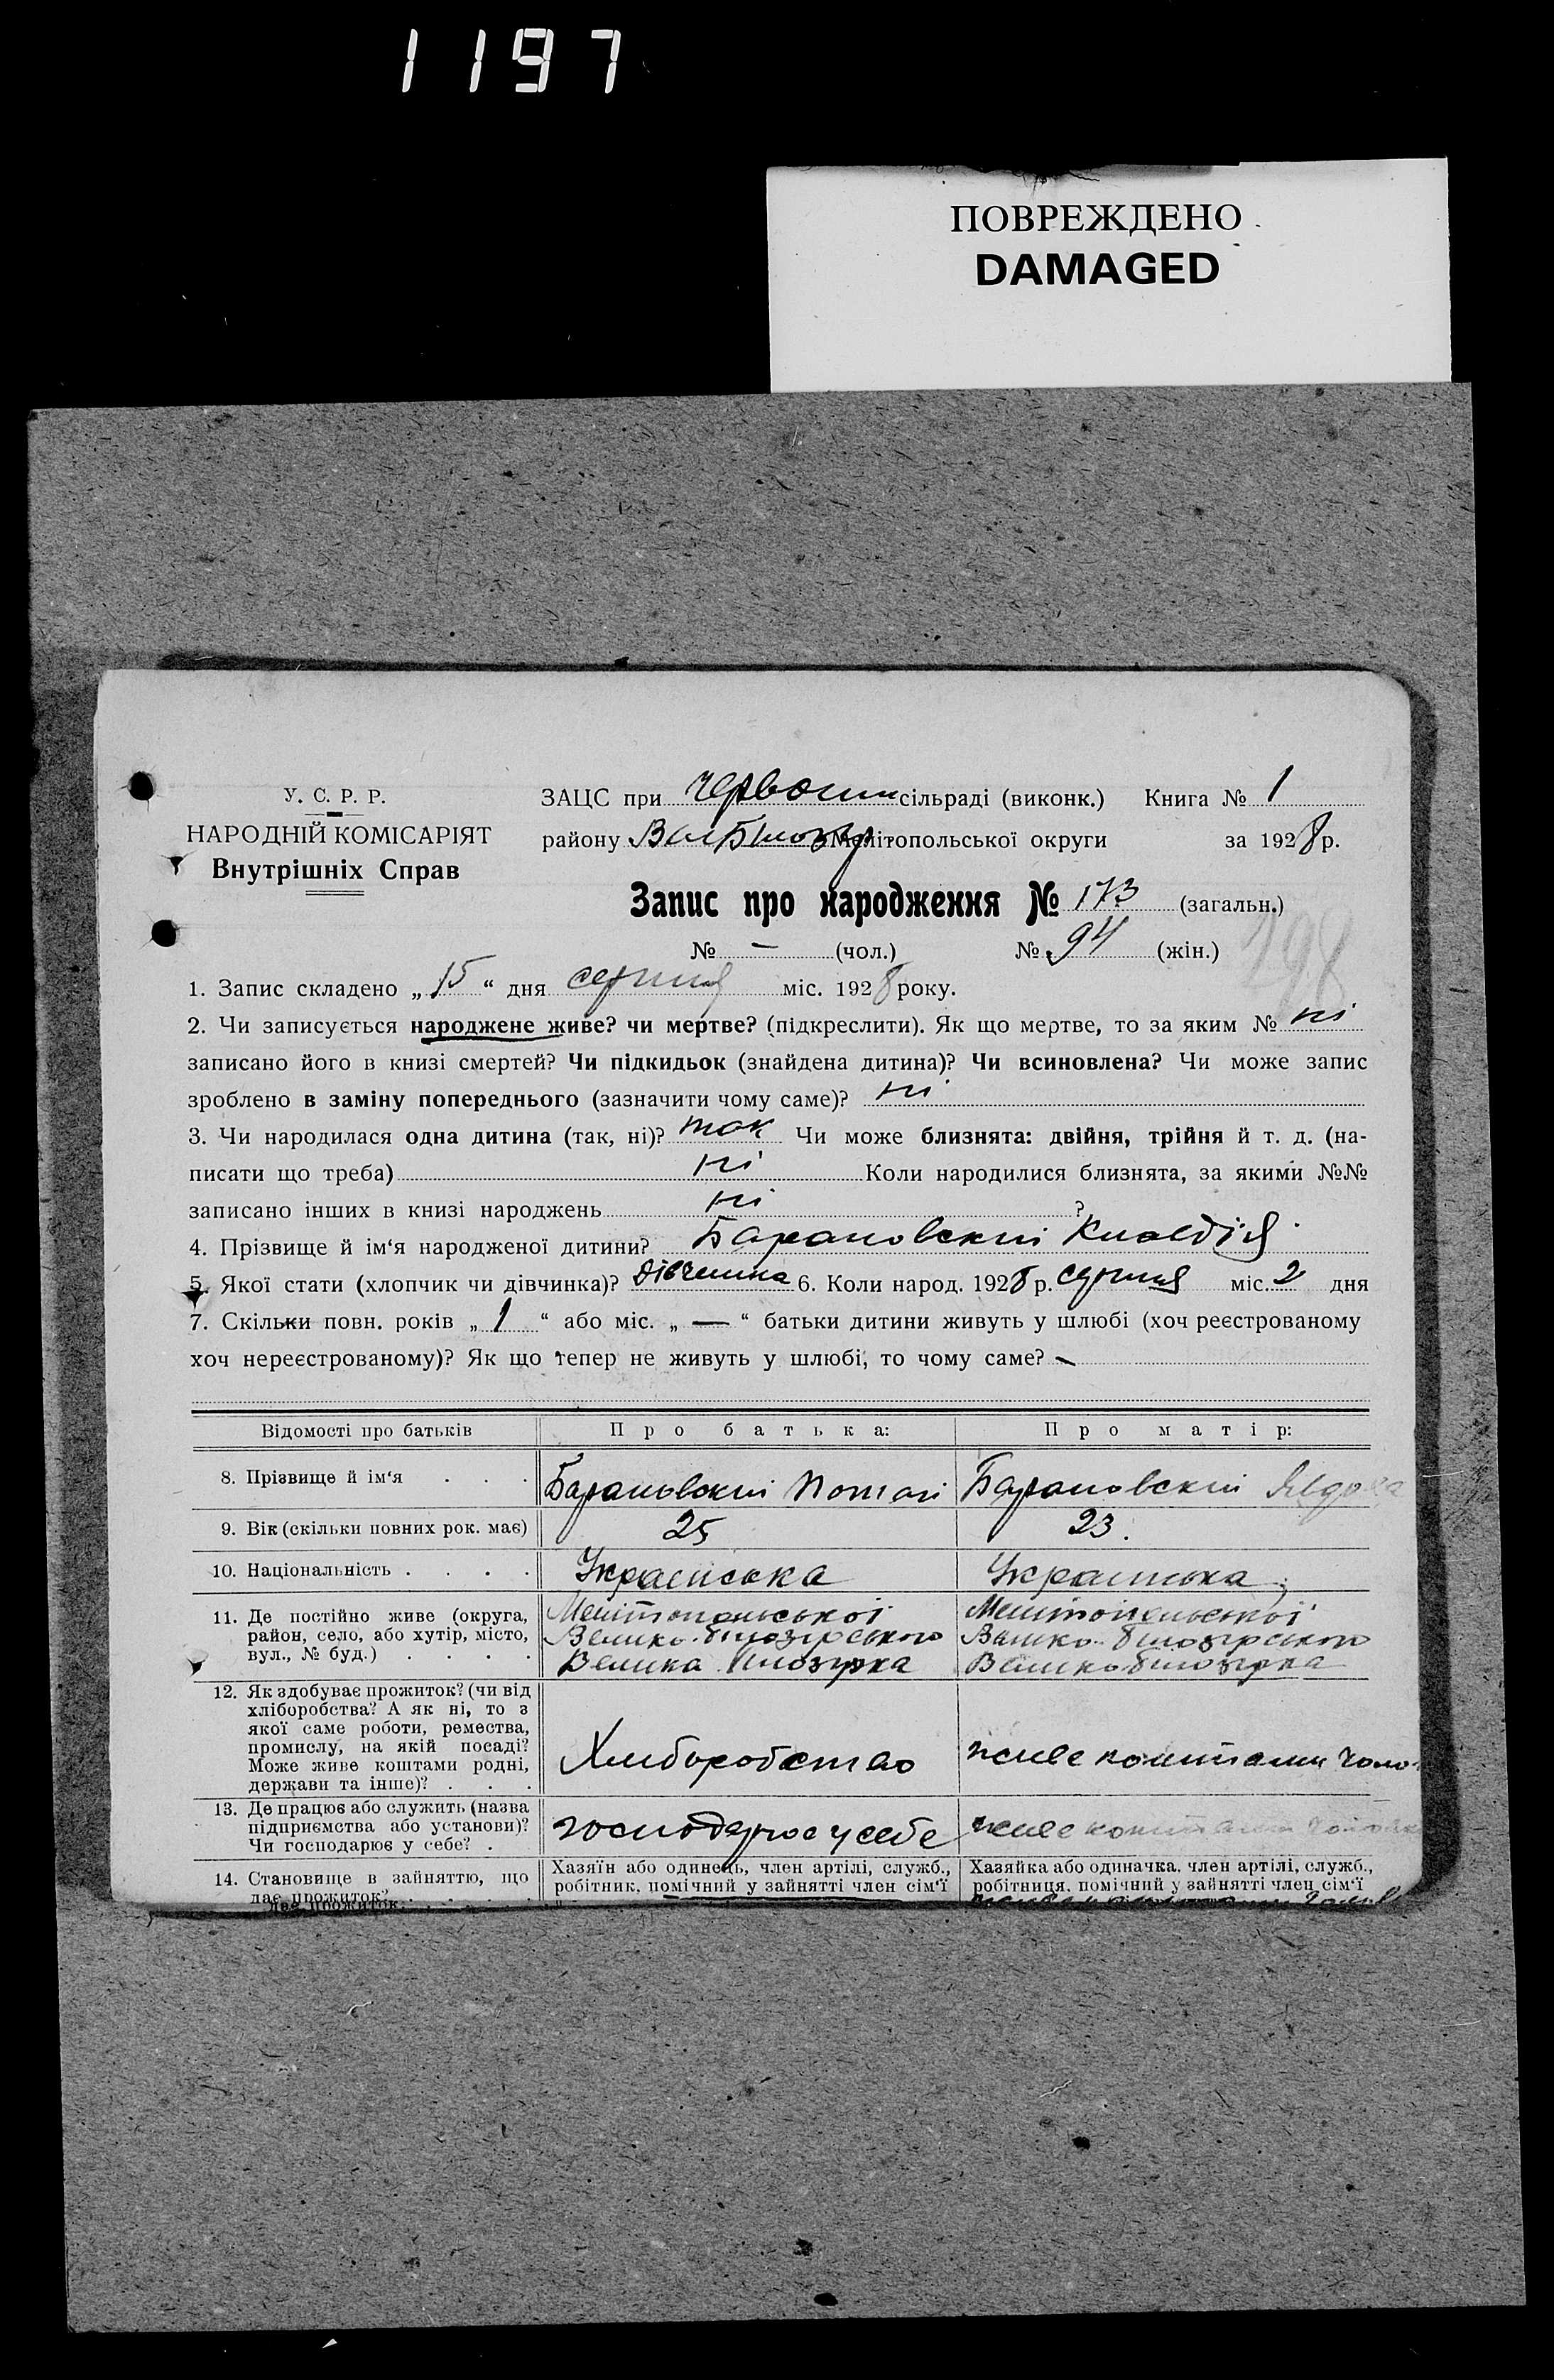 1197
ПОВРЕЖДЕНО
DAMAGED
У. С. Р. Р.
НАРОДНІЙ КОМІСАРІЯТ
Внутрішніх Справ
ЗАЦС при Червоним сільраді (виконк.) Книга № 1
району Вел Білозер Мелітопольської округи за 1928 р.
Запис про народження № 173 (загальн.)
№ — (чол.) № 94 (жін.)
198
1. Запис складено „15“ дня серпня міс. 1928 року.
2. Чи записується народжене живе? чи мертве? (підкреслити). Як що мертве, то за яким № ні
записано його в книзі смертей? Чи підкидьок (знайдена дитина)? Чи всиновлена? Чи може запис
зроблено в заміну попереднього (зазначити чому саме)? ні
3. Чи народилася одна дитина (так, ні)? так Чи може близнята: двійня, трійня й т. д. (на-
писати що треба) ні Коли народилися близнята, за якими №№
записано інших в книзі народжень ні ?
4. Прізвище й ім‘я народженої дитини? Барановскии Клавдія
5. Якої стати (хлопчик чи дівчинка)? дівчина 6. Коли народ. 1928 р. серпня міс. 2 дня
7. Скільки повн. років „1“ або міс. „—“ батьки дитини живуть у шлюбі (хоч реєстрованому
хоч нереєстрованому)? Як що тепер не живуть у шлюбі, то чому саме? —
Відомості про батьків Про батька: Про матір:
8. Прізвище й ім‘я . . . Барановскии Барановскии
9. Вік (скільки повних рок. має) 25 23.
10. Національність . . . . Украинська Украинська
11. Де постійно живе (округа, Мелітопольської Мелітопольської
район, село, або хутір, місто, Велико-білозірського Велико-білозірського
вул., № буд.) . . . . Велика Білозірка Велико білозірка
12. Як здобуває прожиток? (чи від
хліборобства? А як ні, то з
якої саме роботи, ремества,
промислу, на якій посаді? Хліборобство живе коштами чоло
Може живе коштами родні,
держави та інше)? . . .
13. Де працює або служить (назва
підприємства або установи)? господарює у себе живе коштами
Чи господарює у себе? .
14. Становище в зайняттю, що Хазяїн або одинець, член артілі, служб., Хазяйка або одиначка, член артілі, служб.,
дає прожиток? . . . . робітник, помічний у зайнятті член сім‘ї робітниця, помічний у зайнятті член сім‘ї